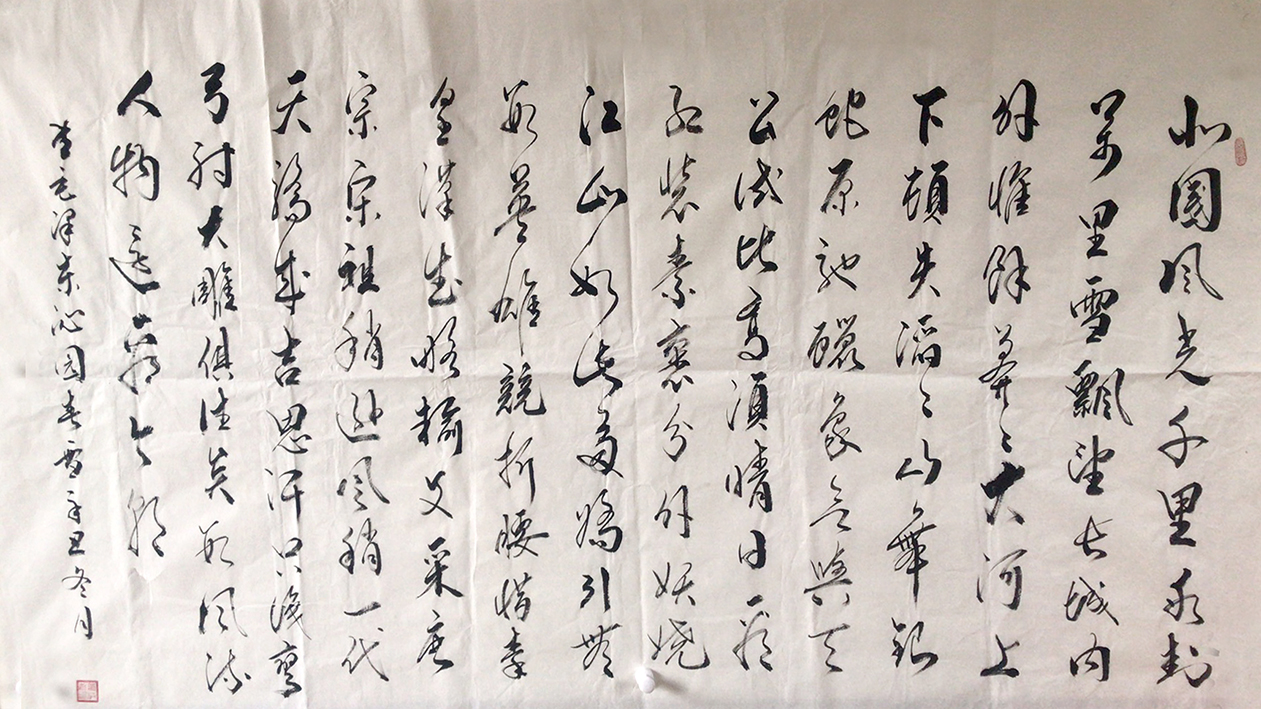 北國風光千里冰封
萬里雪飄望長城内
外惟餘莽〻大河上
下頓失滔〻山舞銀
蛇原馳蠟象欲與天
公試比高須晴日看
紅裝素裹分外妖嬈
江山如此多嬌引無
數英雄競折腰惜秦
皇漢武略輸文采唐
宗宋祖稍遜風稍一代
天驕成吉思汗只識彎
弓射大雕俱往矣數風流
人物還看今朝
毛澤東沁園春雪辛丑冬月